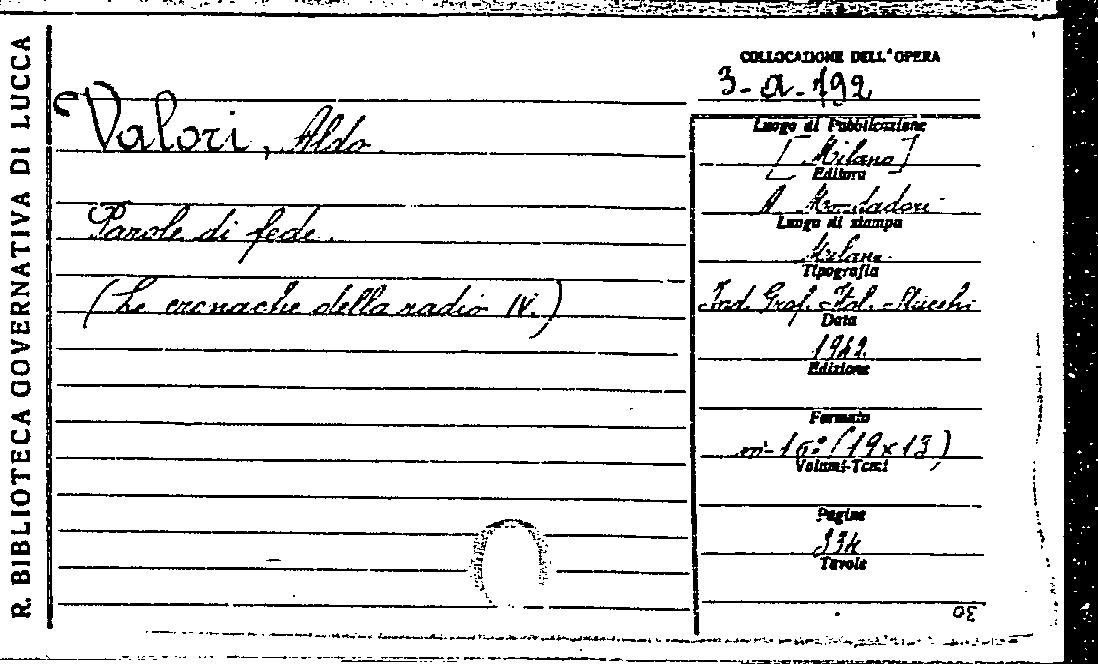 R. BIBLIOTECA GOVERNATIVA DI LUCCA
COLLOCAZIONE DELL'OPERA
3-a-192
Valori, Aldo.
Parole di fede.
(Le cronache della radio IV.)
Luogo di Pubblicazione
[Milano]
Editore
A. Mondadori
Luogo di stampa
Milano
Tipografia
Ind. Graf. Ital. - Stucchi
Data
1942
Edizione
Formato
in-16° (19x13)
Volumi-Tomi
Pagine
Tavole
30